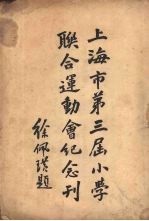 上海市第三届小學
聯合運動會纪念刊
徐佩璜題